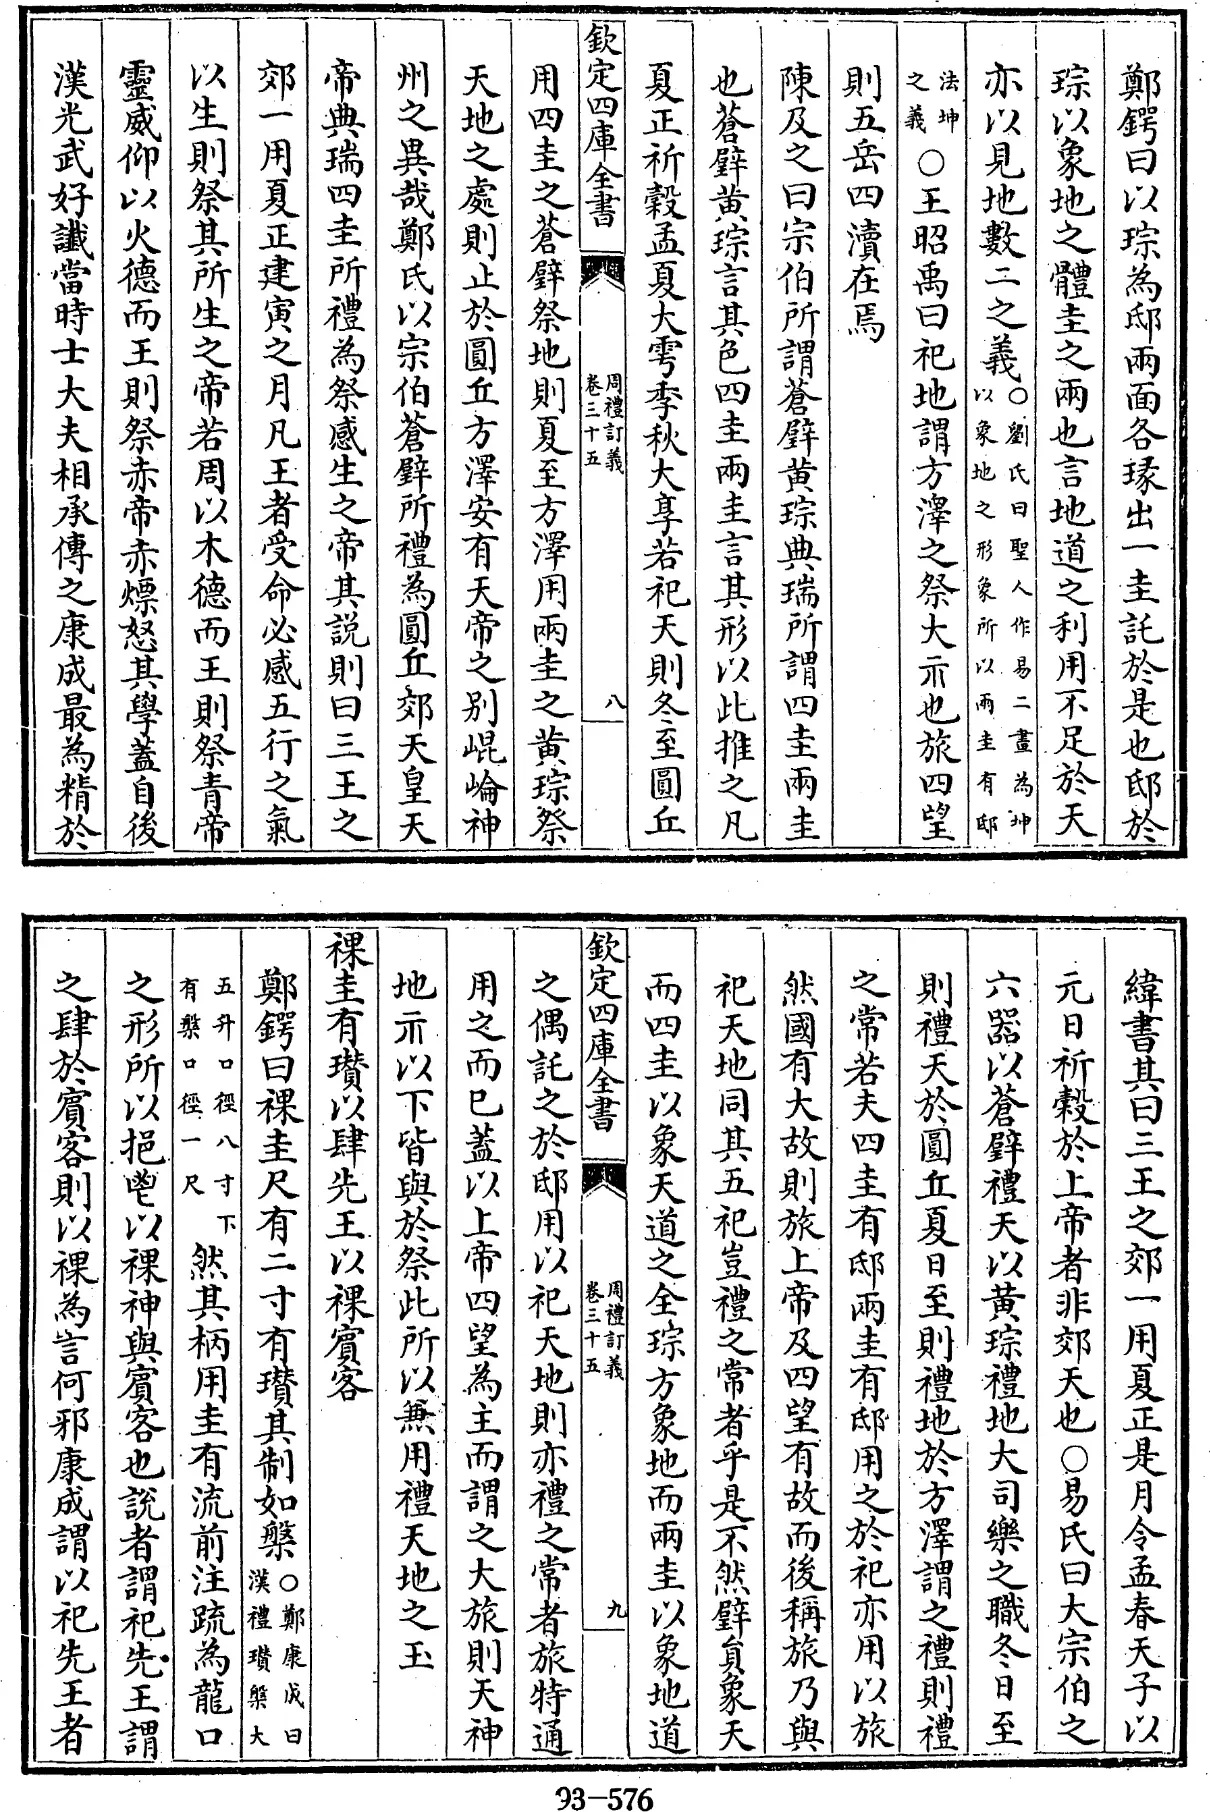 鄭鍔曰以琮為邸兩面各瑑出一圭託於是也邸於
琮以象地之體圭之兩也言地道之利用不足於天
亦以見地數二之義○劉氏曰聖人作易二畫為坤以象地之形象所以兩圭有邸
法坤之義○王昭禹曰祀地謂方澤之祭大示也旅四望
則五岳四瀆在焉
陳及之曰宗伯所謂蒼璧黄琮典瑞所謂四圭兩圭
也蒼璧黄琮言其色四圭兩圭言其形以此推之凡
夏正祈穀孟夏大雩季秋大享若祀天則冬至圓丘
欽定四庫全書
周禮訂義
卷三十五
八
用四圭之蒼璧祭地則夏至方澤用兩圭之黄琮祭
天地之處則止於圓丘方澤安有天帝之别崐崘神
州之異哉鄭氏以宗伯蒼璧所禮為圓丘郊天皇天
帝典瑞四圭所禮為祭感生之帝其説則曰三王之
郊一用夏正建寅之月凡王者受命必感五行之氣
以生則祭其所生之帝若周以木德而王則祭青帝
靈威仰以火德而王則祭赤帝赤熛怒其學蓋自後
漢光武好讖當時士大夫相承傳之康成最為精於
緯書其曰三王之郊一用夏正是月令孟春天子以
元日祈穀於上帝者非郊天也○易氏曰大宗伯之
六器以蒼璧禮天以黄琮禮地大司樂之職冬日至
則禮天於圓丘夏日至則禮地於方澤謂之禮則禮
之常若夫四圭有邸兩圭有邸用之於祀亦用以旅
然國有大故則旅上帝及四望有故而後稱旅乃與
祀天地同其五祀豈禮之常者乎是不然璧負象天
而四圭以象天道之全琮方象地而兩圭以象地道
欽定四庫全書
周禮訂義
卷三十五
九
之偶託之於邸用以祀天地則亦禮之常者旅特通
用之而已蓋以上帝四望為主而謂之大旅則天神
地示以下皆與於祭此所以無用禮天地之玉
祼圭有瓚以肆先王以祼賓客
鄭鍔曰祼圭尺有二寸有瓚其制如槃○鄭康成曰漢禮瓚槃大
五升口徑八寸下有槃口徑一尺然其柄用圭有流前注疏為龍口
之形所以挹鬯以祼神與賓客也説者謂祀先王謂
之肆於賓客則以祼為言何邪康成謂以祀先王者
93-576